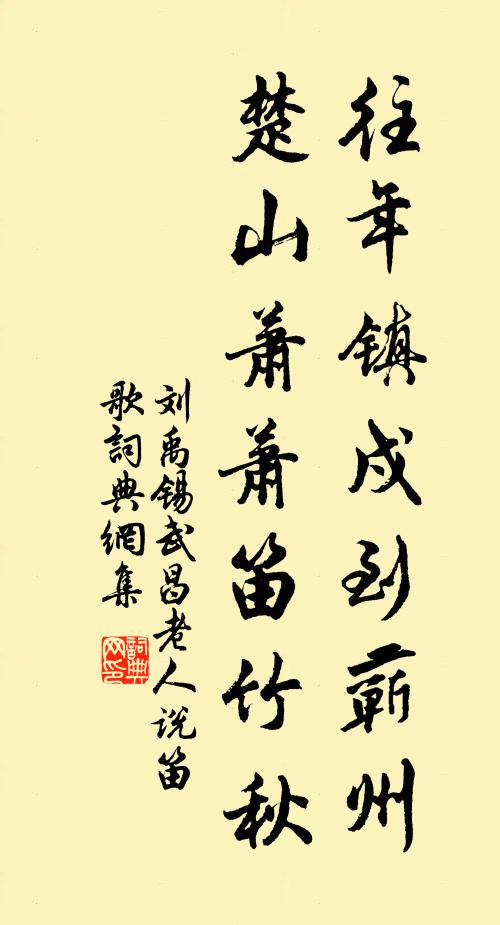 往年镇戍到蕲州
楚山萧萧笛竹秋
刘禹锡武昌老人说笛
歌詞典網集
詞典网印